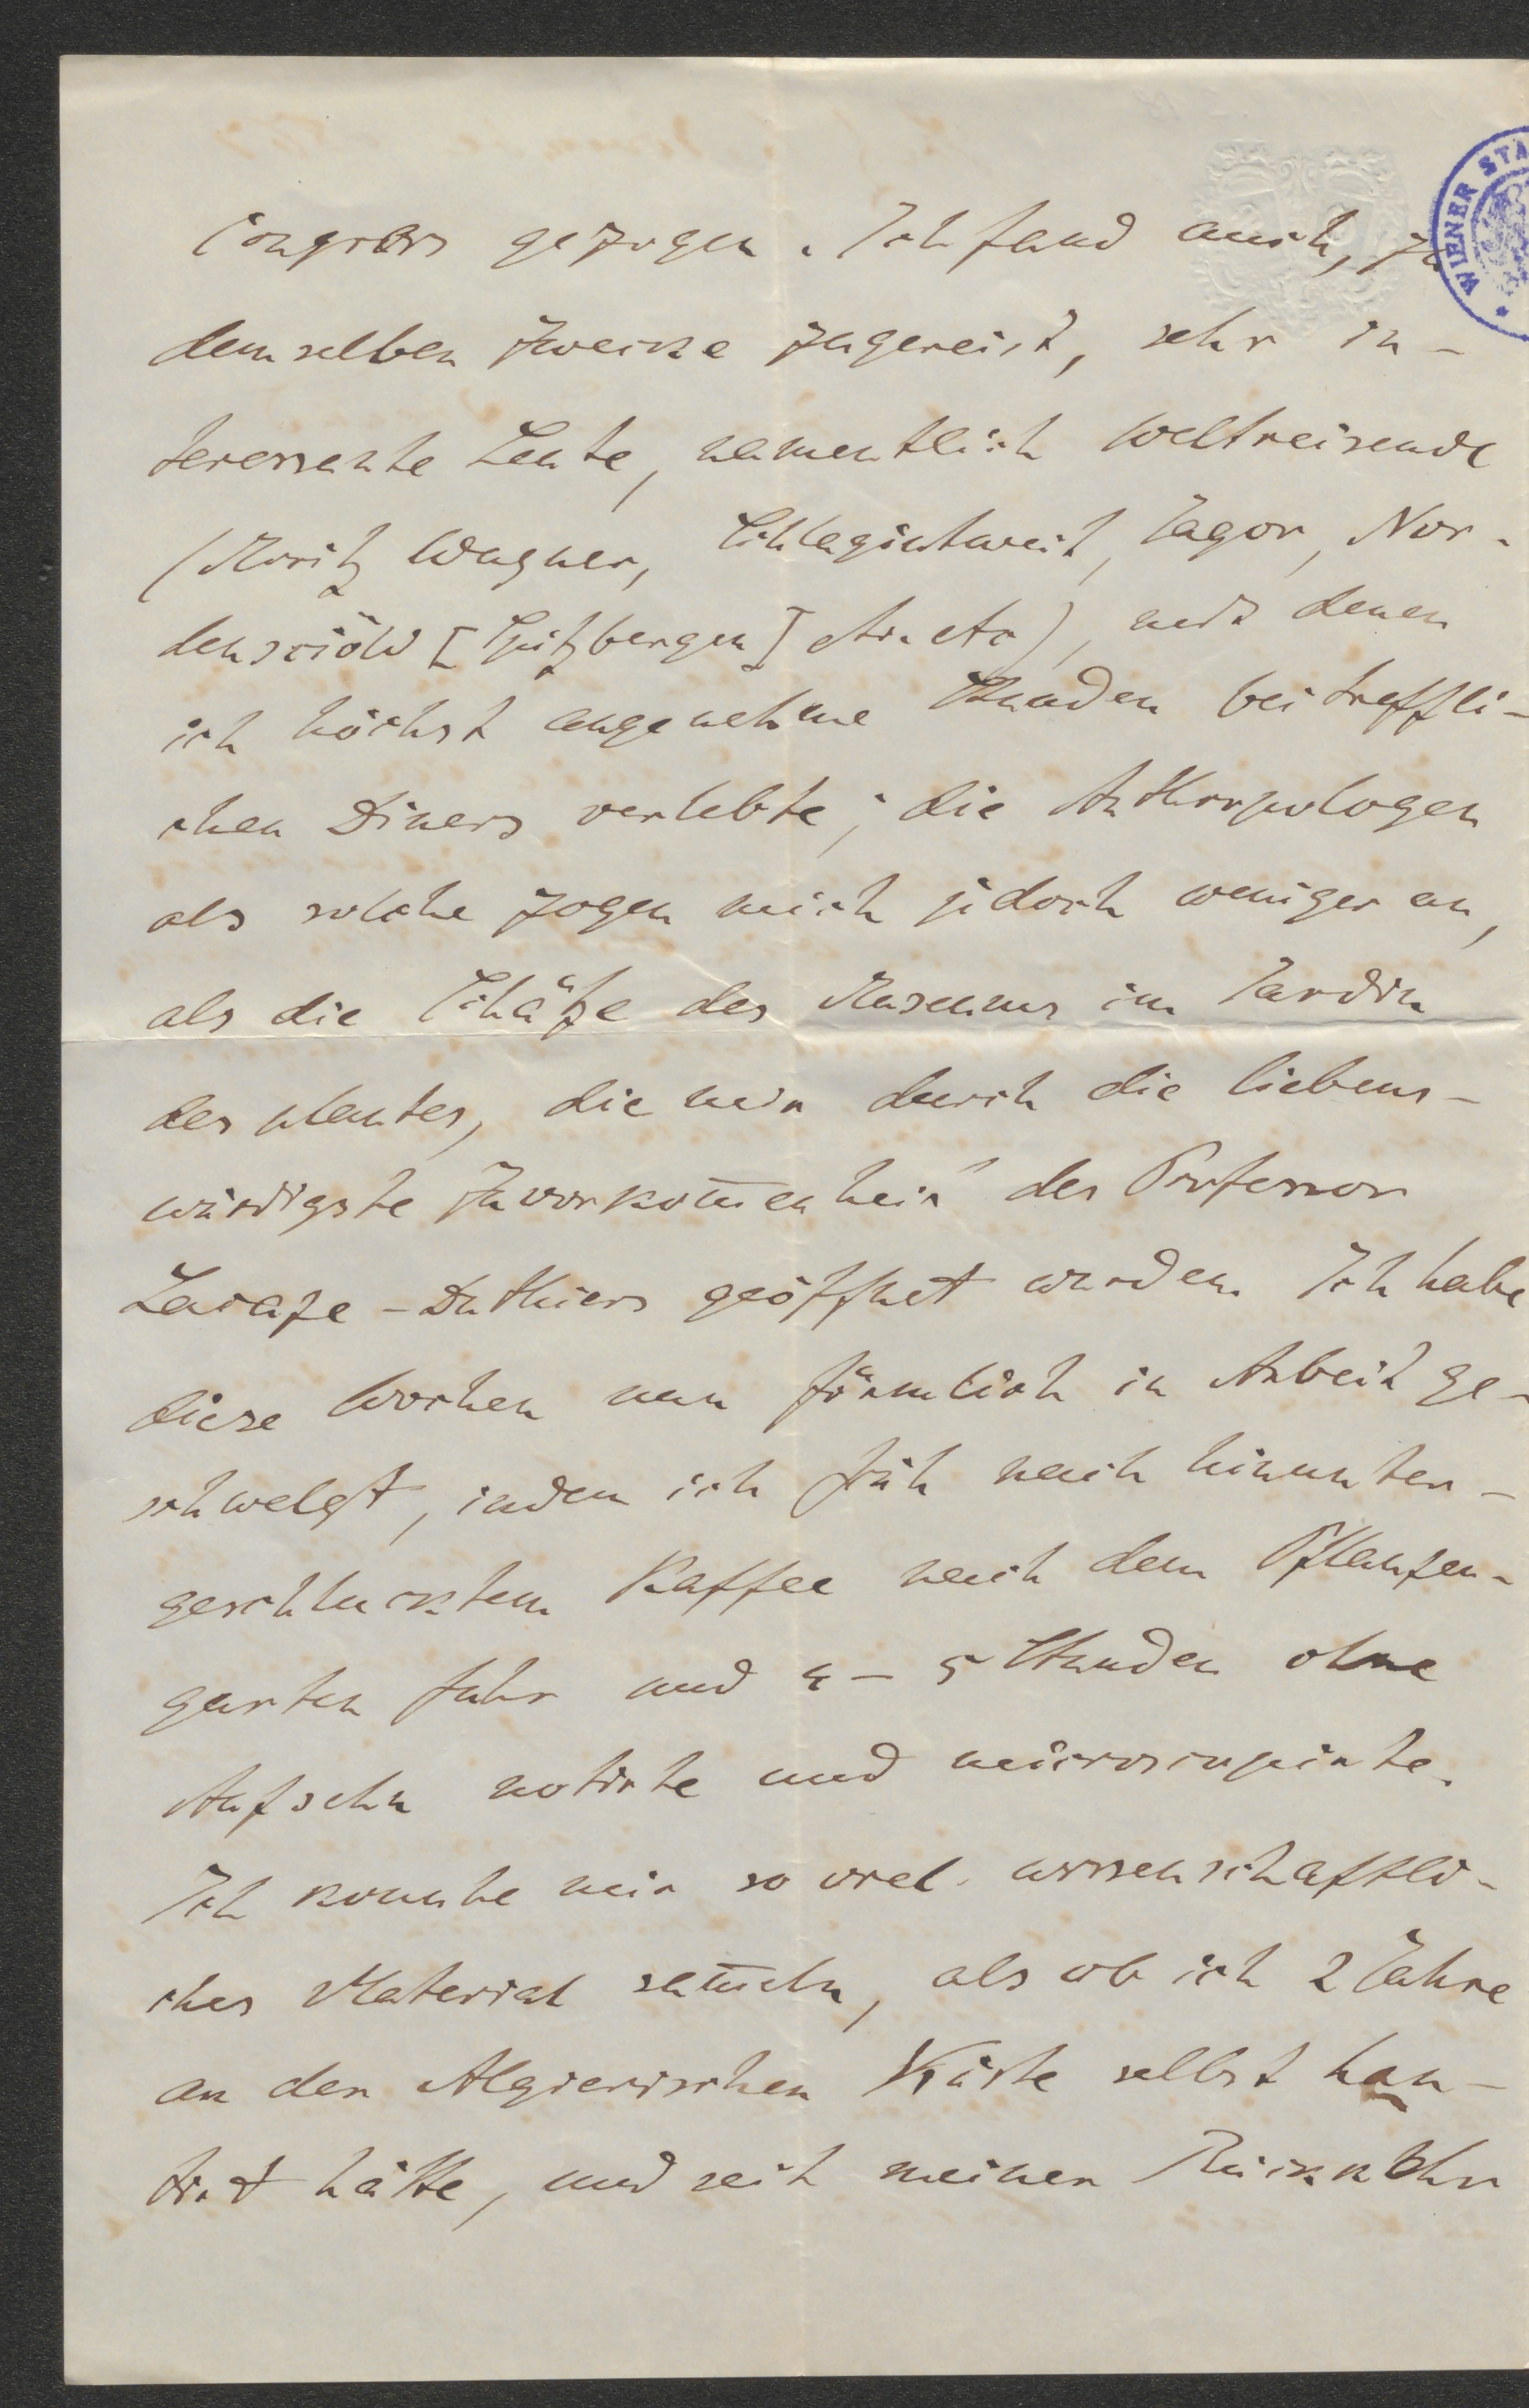 Congress gezogen. Ich fand auch, zu
WIENER STA
demselben Zwecke zugereist, sehr in-
teressante Leute, namentlich Weltreisende
(Moritz Wagner, Schlagintweit, Jagor, Nor-
densciöld [Spitzbergen] etc. etc), mit denen
ich höchst angenehme Stunden bei treffli-
chen Diners verlebte; die Anthropologen
als solche zogen mich jedoch weniger an,
als die Schätze des Museums im Jardin
des plantes, die mir durch die liebens-
würdigste Zuvorkom̅enheit des Professor
Lacaze-Duthiers geöffnet wurden. Ich habe
diese Wochen nun förmlich in Arbeit ge-
schwelgt, indem ich früh nach hinunter-
geschlucktem Kaffee nach dem Pflanzen-
garten fuhr und 4-5 Stunden ohne
Aufsehn notirte und microscopirte.
Ich konnte mir so viel wissenschaftli-
ches Material sam̅eln, als ob ich 2 Jahre
an der Algierischen Küste selbst han-
tirt hätte, und seit meiner Rückkehr